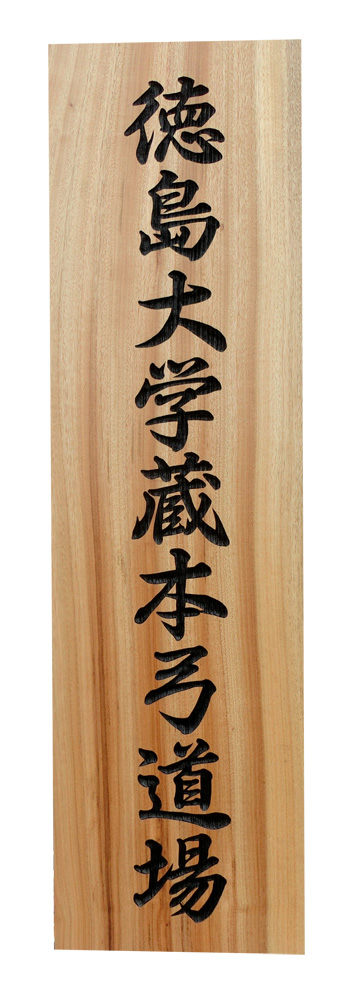 徳島大学蔵本弓道場